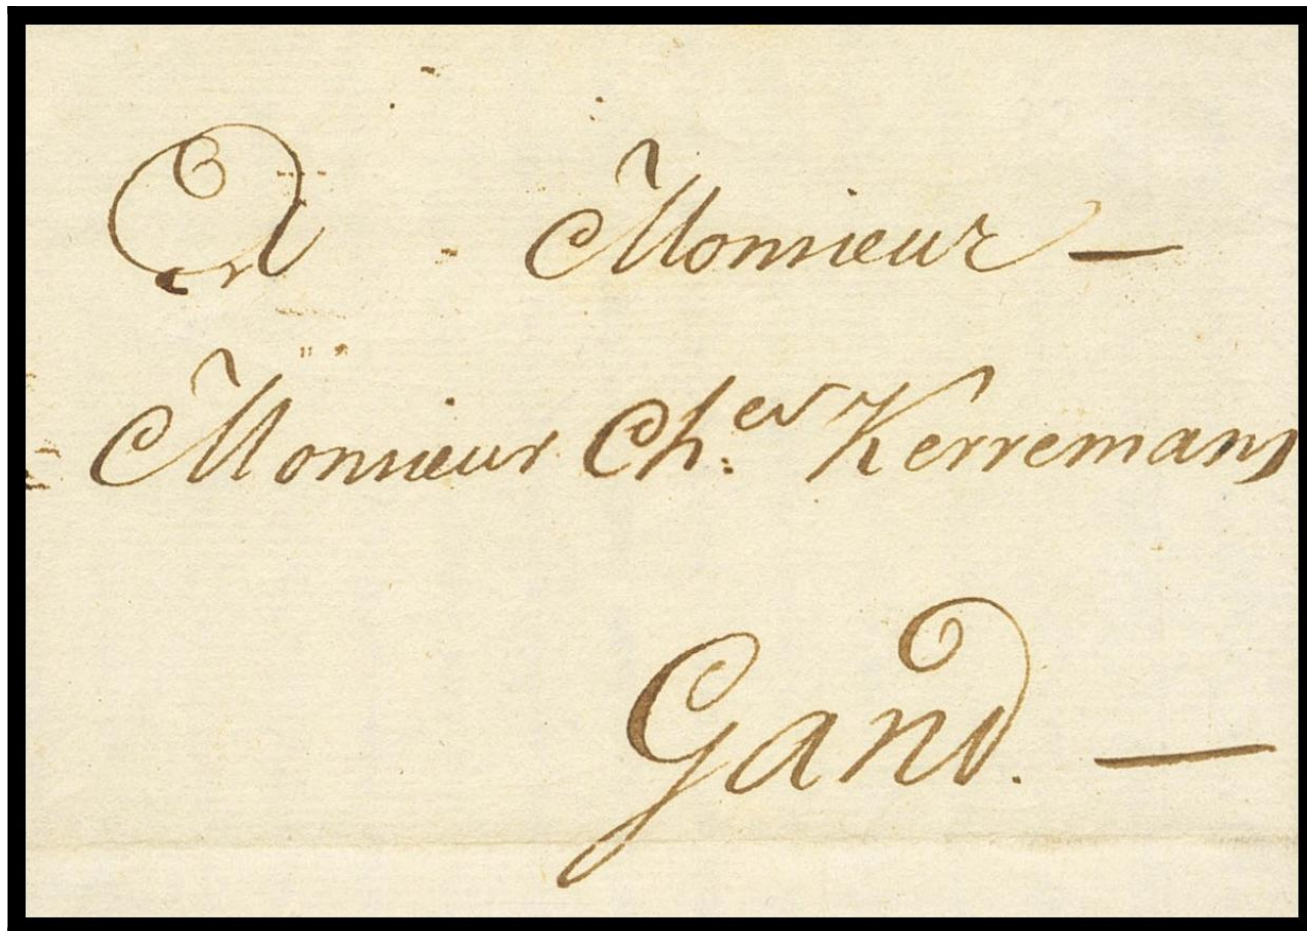 A Monsieur —
Monsieur Ch:er Kerremans
Gand. —